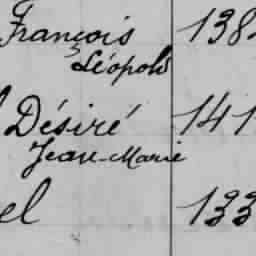 François 138
Léopold
Désiré 141
Jean-Marie
el 133